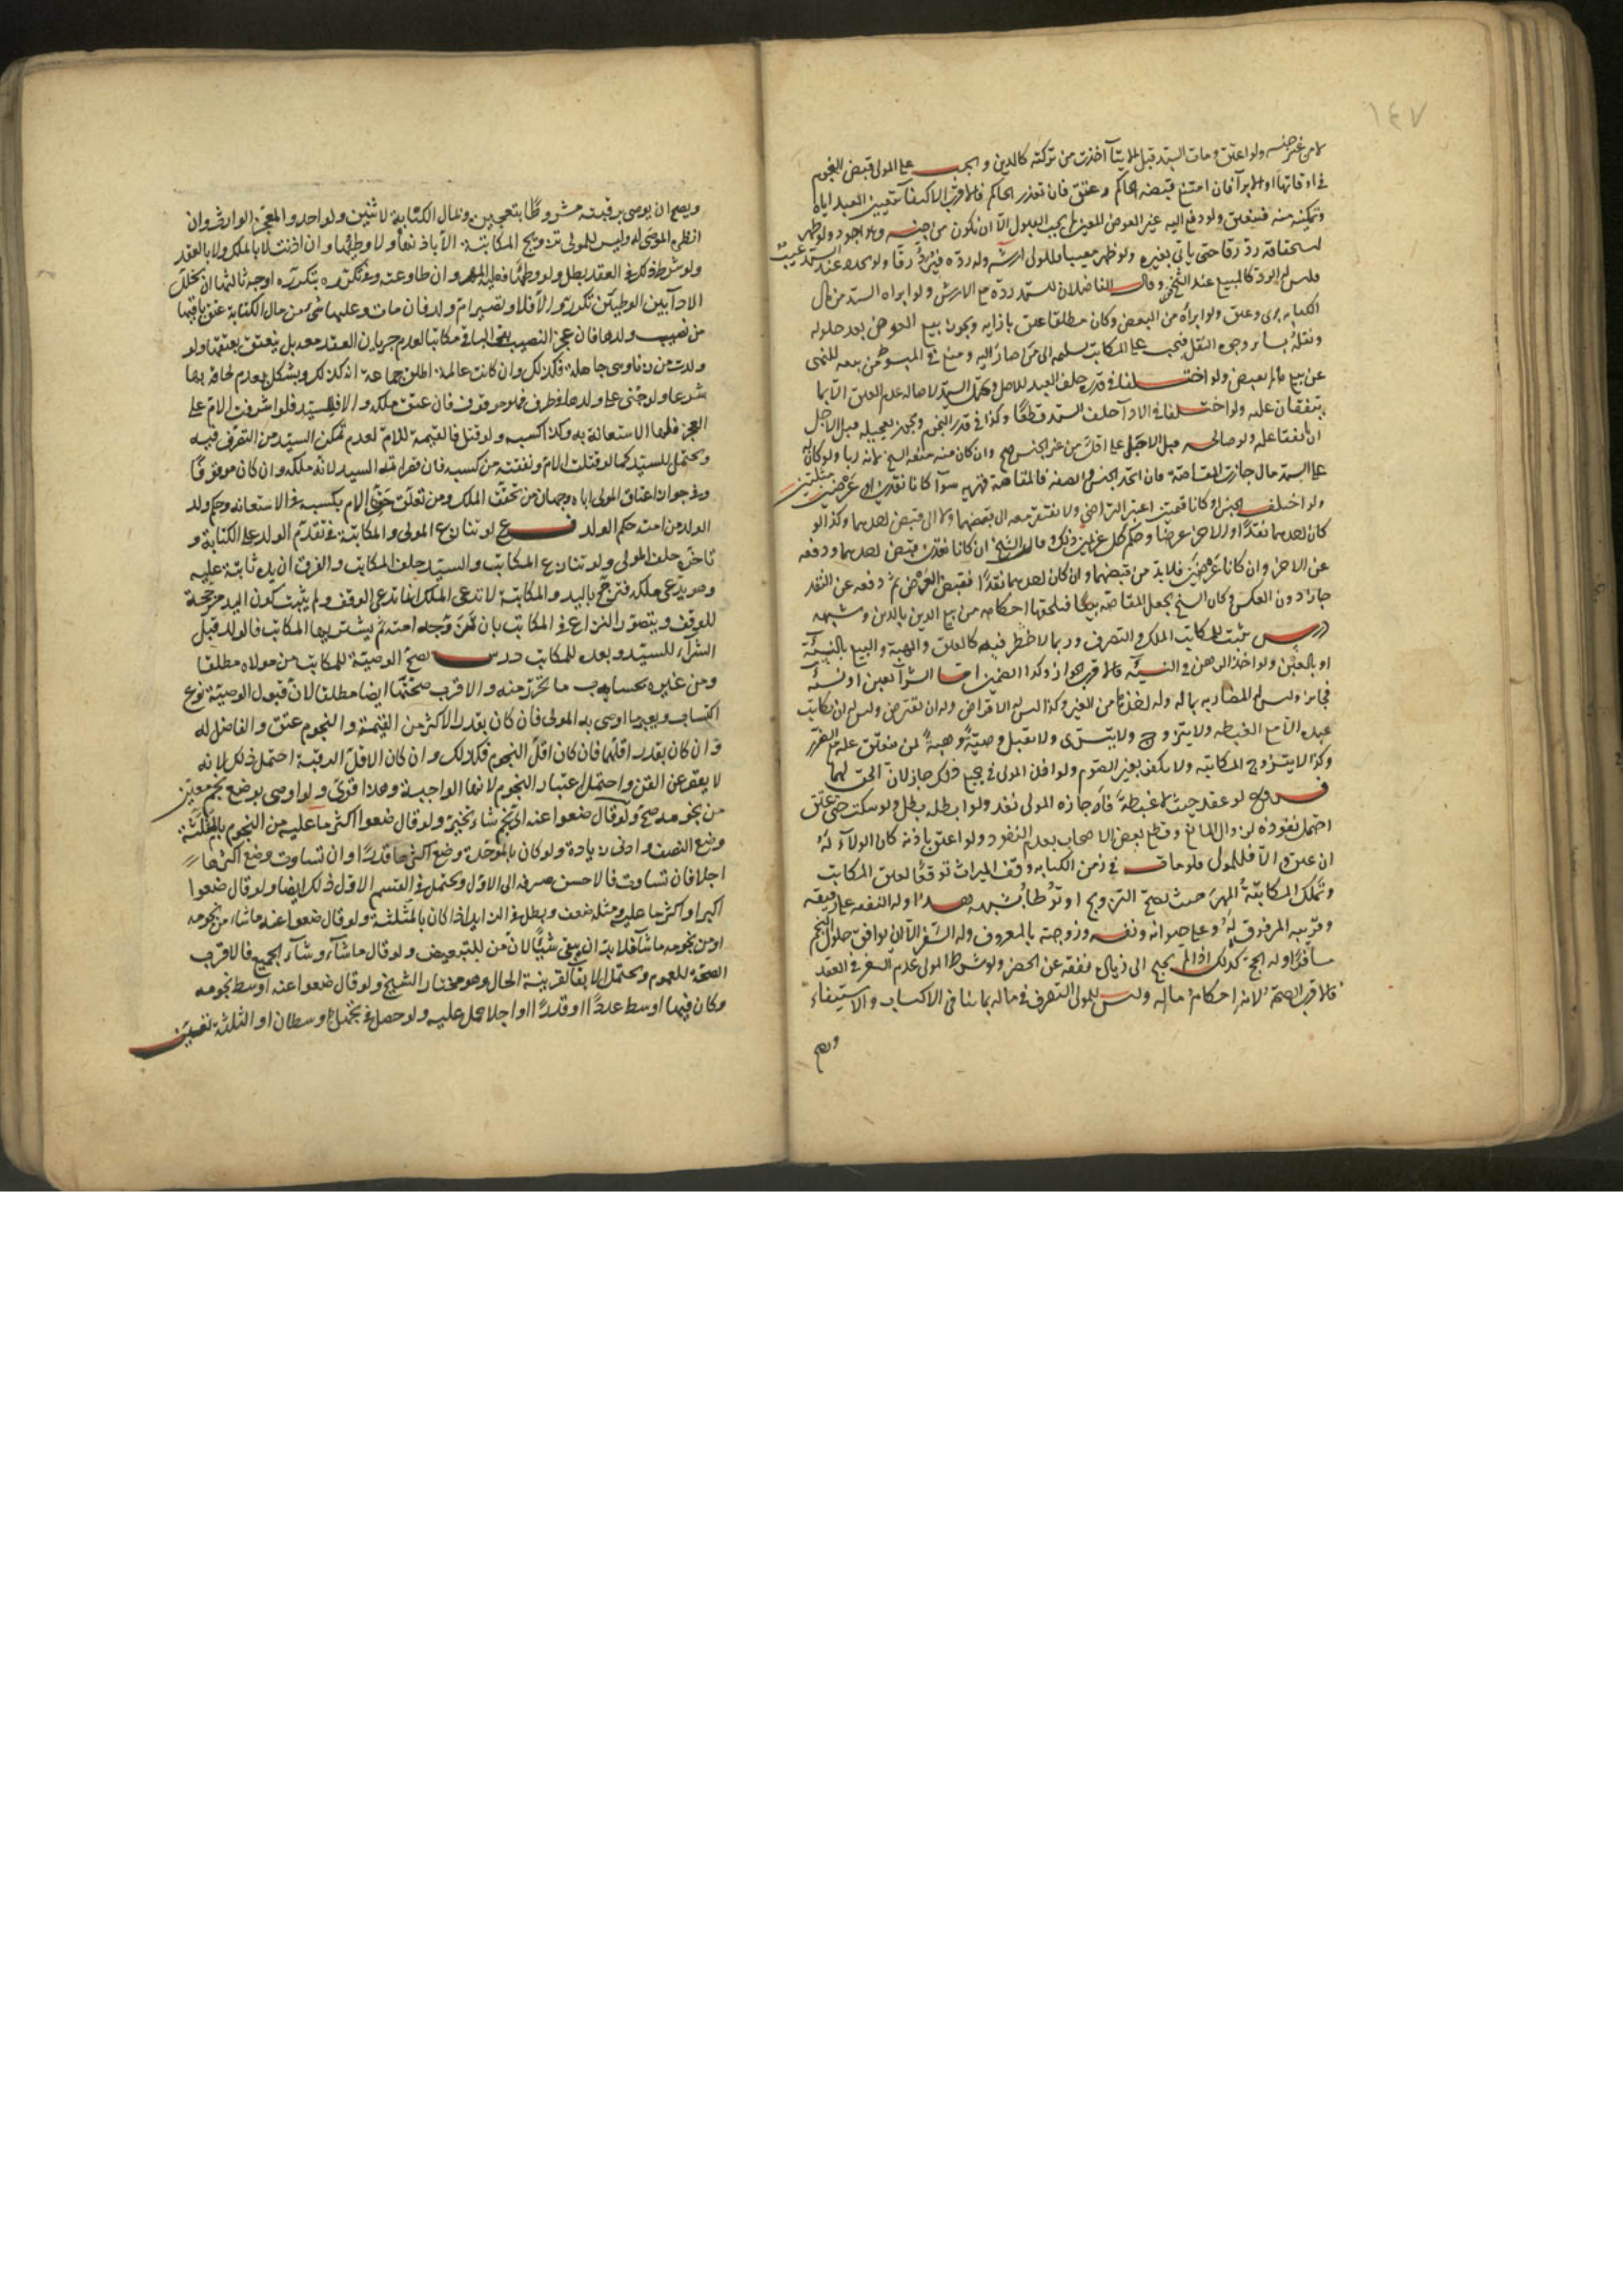 ١٤٧
لا من غير جنسه ولو اعتق ومات السيد قبل الايتاء اخذت من تركته كالدين و يجب على المولى قبض النجوم
في اوقاتها او الابراء فان امتنع قبضه الحاكم وعتق فان تعذر الحاكم فالاقرب الاكتفاء بتعيين العبد اياه
وتمكينه منه فينعتق ولو دفع اليه غير العوض المعين لم يجب القبول الا ان يكون من جنسه وهو اجود ولو ظهر
استحقاقه رد رقا حتى ياتي بغيره ولو ظهر معيبا فللمولى ارشه وله رده فيرد رقا ولو تجدد عند السيد عيب
فليس له الرد كالمبيع عند الشيخ وقال الفاضلان للسيد رده مع الارش ولو ابراه السيد من مال
الكتابة برئ وعتق ولو ابرأه من البعض وكان مطلقا عتق بازايه ويجوز بيع العوض بعد حلوله
ونقله بساير وجوه النقل فيجب على المكاتب تسليمه الى من صار اليه ومنع في المبسوط من بيعه للنهي
عن بيع ما لم يقبض ولو اختلفا في قدره حلف العبد للاصل ويحتمل السيد لاصالة عدم العتق الا بما
يتفقان عليه ولو اختلفا في الاداء حلف السيد قطعا وكذا في قدر النجوم ويجوز تعجيله قبل الاجل
ان اتفقا عليه ولو صالحه قبل الاجل على اقل من غير الجنس صح وان كان منه منعه الشيخ لانه ربا ولو كان له
على السيد مال جازت المقاصة فان اتحد الجنس والصفة فالمقاصة قهرية سواء كانا نقدين او عرضين مثليين
ولو اختلف الجنس او كانا قيميين اعتبر التراضي ولا يفتقر معه الى تقبضهما ولا الى قبض احدهما وكذا لو
كان احدهما نقدا والاخر عرضا وحكم كل غريمين ذلك وقال الشيخ ان كانا نقدين قبض احدهما ودفعه
عن الاخر وان كانا عرضين فلا بد من قبضهما وان كان احدهما نقدا فقبض العرض ثم دفعه عن النقد
جاز دون العكس وكان الشيخ يجعل المقاصة بيعا فيلحقها احكامه من بيع الدين بالدين وشبهه
درس يثبت للمكاتب الملك والتصرف وربما لا خطر فيه كالعتق والهبة والبيع بالنسيئة
او بالغبن ولو اخذ الرهن في النسيئة فالاقرب الجواز وكذا الضمين اما الشراء بعين او نسيئة
فجايز وليس له المضاربة بماله وله اخذها من الغير وكذا ليس له الاقراض وله ان يقترض وليس له ان يكاتب
عبده الا مع الغبطة ولا يتزوج ولا يتسرى ولا يقبل وصية وهبة لمن ينعتق عليه مع الضرر
وكذا لا يتزوج المكاتبة ولا يكفر بغير الصوم ولو اذن المولى في جميع ذلك جاز لان الحق لهما
فروع لو عقد حيث لا غبطة فاجازه المولى نفذ ولو ابطله بطل ولو سكت حتى عتق
احتمل نفوذه لزوال المانع وقطع بعض الاصحاب بعدم النفوذ ولو اعتق باذنه كان الولاء له
ان عتق والا فللمولى فلو مات في زمن الكتابة وقف الميراث توقعا لعتق المكاتب
وتملك المكاتبة المهر حيث يصح التزويج او توطا بشبهة وله النفقة على رقيقه
وقريبه المرقوق له وعلى حيوانه ونفسه وزوجته بالمعروف وله السفر الا ان يوافق حلول النجم
سافرا وله الحج كذلك اذا لم يحتج الى زيادة نفقة عن الحضر ولو شرط المولى عدم السفر في العقد
فالاقرب الصحة لانه احكام ماله وليس للمولى التصرف في ماله بما ينافي الاكتساب والا استيفاء
ويصح
ويصح ان يوصى برقبته مشروطا بتعجيزه وبمال الكتابة لاثنين ولواحد والمعجز الوارث وان
انظره الموصى له وليس للمولى تزويج المكاتبة الا باذنها ولا وطئها وان اذنت لا بالملك ولا بالعقد
ولو شرط ذلك في العقد بطل ولو وطئها فعليه المهر وان طاوعته وفي تكرره بتكرره اوجه ثالثها ان تخلل
الاداء بين الوطيين تكرر والا فلا وتصير ام ولد فان مات وعليها شئ من مال الكتابة عتق باقيها
من نصيب ولدها فان عجز النصيب بقى الباقي مكاتبا لعدم جريان العقد معه بل ينعتق بعتقها ولو
ولدت من زنا وهي جاهلة فكذلك وان كانت عالمة اطلق جماعة انه كذلك ويشكل بعدم لحاقه بها
شرعا ولو جنى على ولدها في طرف فهو موقوف فان عتق ملكه والا فللسيد فلو اشرفت الام على
العجز فلها الاستعانة به وكذا كسبه ولو قتل فالقيمة للام لعدم تمكن السيد من التصرف فيه
ويحتمل للسيد كما لو قتلت الام ونفقته من كسبه فان قصر اتمه السيد لانه ملكه وان كان موقوفا
وفي جواز اعتاق المولى اياه وجهان من تحقق الملك ومن تعلق حق الام بكسبه في الاستعانة وحكم ولد
الولد من امته حكم الولد فرع لو تنازع المولى والمكاتبة في تقدم الولد على الكتابة و
تاخره حلف المولى ولو تنازع المكاتب والسيد حلف المكاتب والفرق ان يده ثابتة عليه
وهو يدعي ملكه فترجح باليد والمكاتبة لا تدعي الملك انما تدعي الوقف ولم يثبت كون اليد مرجحة
للوقف ويتصور النزاع في المكاتب بان زوجه امته ثم يشتريها المكاتب فالولد قبل
الشراء للسيد وبعده للمكاتب درس تصح الوصية للمكاتب من مولاه مطلقا
ومن غيره بحساب ما تحرر منه والاقرب صحتها ايضا مطلقا لان قبول الوصية نوع
اكتساب ويعتبر ما اوصى به المولى فان كان بقدر الاكثر من القيمة والنجوم عتق والفاضل له
وان كان بقدر اقلهما فان كان اقل النجوم فكذلك وان كان الاقل القيمة احتمل ذلك لانه
لا يقصر عن القن واحتمل اعتبار النجوم لانها الواجبة وهذا قوى ولو اوصى بوضع نجم معين
من نجومه صح ولو قال ضعوا عنه اي نجم شاء تخير ولو قال ضعوا اكثر ما عليه من النجوم بالمثلثة
وضع النصف وادنى زيادة ولو كان بالموحدة وضع اكبرها قدرا وان تساوت وضع اكبرها
اجلا فان تساوت فالاحسن صرفه الى الاول ويحتمل في القسم الاول ذلك ايضا ولو قال ضعوا
اكبر او اكثر ما عليه ومثله ضعف وبطل في الزايد اذا كان بالمثلثة ولو قال ضعوا عنه ما شاء من نجومه
او من نجومه ما شاء فلا بد ان يبقى شيئا لان من للتبعيض ولو قال ما شاء وشاء الجميع فالاقرب
الصحة للعموم ويحتمل الابقاء لقرينة الحال وهو مختار الشيخ ولو قال ضعوا عنه اوسط نجومه
وكان فيها اوسط عددا او قدرا او اجلا حمل عليه ولو حصل في نجمه اوسطان او الثلثة تعين